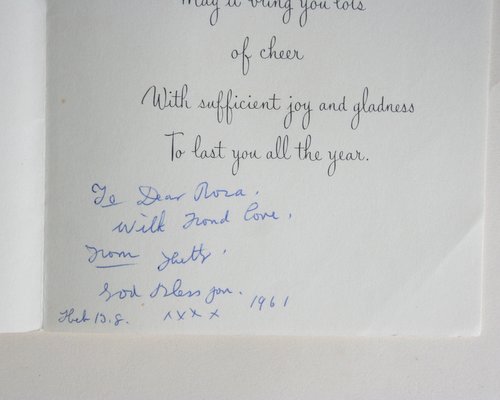 May it bring you lots
of cheer
With sufficient joy and gladness
To last you all the year.
To Dear Rosa.
With Fond Love.
From
God Bless you.
1961
x x x x